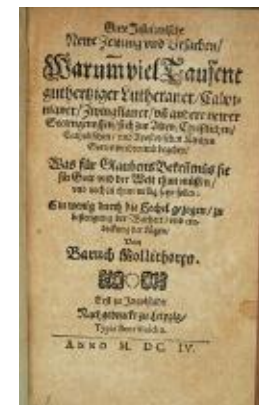 Gute Jesuitische
Newe Zeitung vnd Vrsachen/
Warumb viel Tausent
guthertziger Lutheraner/ Calvi-
nianer/ Zwinglianer/ vñ andere newer
sich zur Alten/ Christlichen/
Catholischen/ vnd Apostolischen Kirchen
begeben/
Was für Glaubens Bekentnüs sie
für Gott vnd der Welt thun müssen/
vnd nach in thun willig seyn sollen:
Ein wenig durch die Hechel gezogen/ zu
der Warheit/ vnd ent-
deckung der Lügen/
Von
Baruch
Erst zu Ingolstadt
Nachgedruckt zu Leipzig/
Typis
ANNO M. DC. IV.